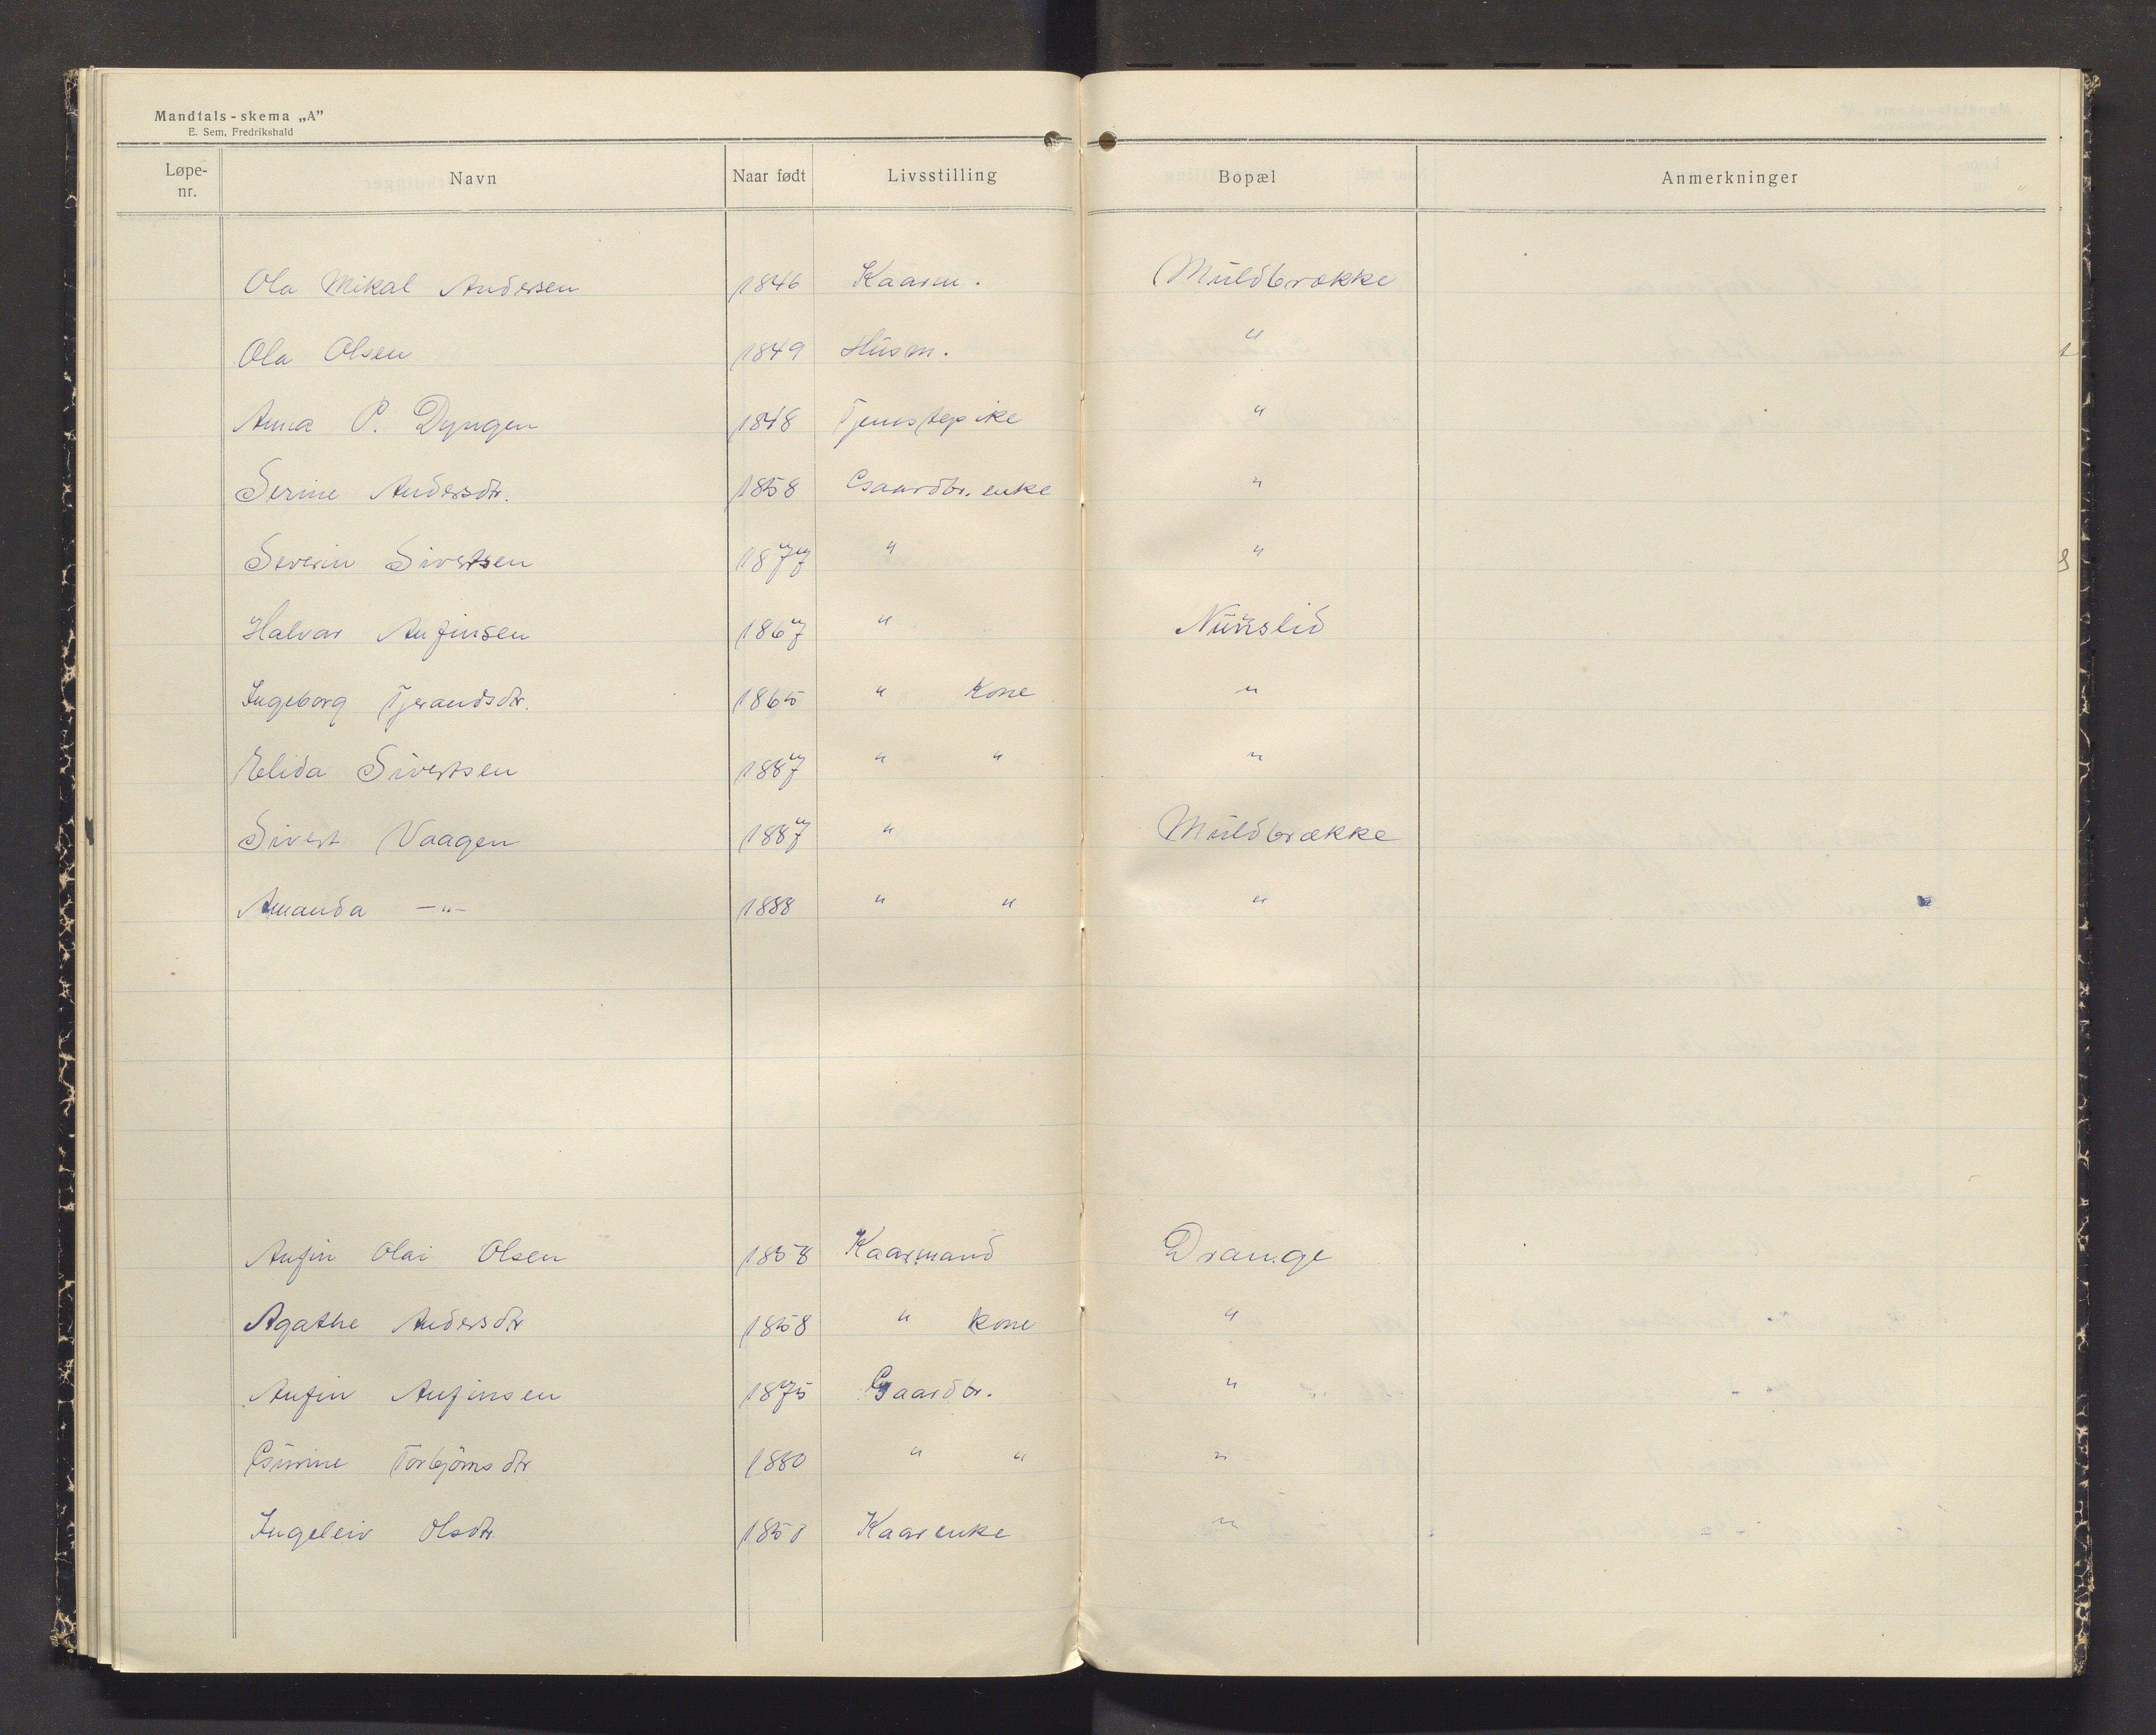 Mandtals-skema „A”
E. Sem, Fredrikshald
Løpe-nr. Navn Naar født Livsstilling Bopæl Anmerkninger
Ola Mikal Andersen 1846 Kaarm. Muldbrække
Ola Olsen 1849 Husm. "
Anna P. Dyngen 1848 Tjenstepike "
Serine Andersdtr. 1858 Gaardbr. enke "
Severin Sivertsen 1877 " "
Halvar Anfinsen 1867 " Nunslid
Ingeborg Tjerandsdtr. 1865 " Kone "
Elida Sivertsen 1887 " " "
Sivert Vaagen 1887 " Muldbrække
Amanda —"— 1888 " " "
Anfin Olai Olsen 1858 Kaarmand Drange
Agathe Andersdtr 1858 " Kone "
Anfin Anfinsen 1875 Gaardbr. "
Gurine Torbjørnsdtr 1880 " " "
Ingeleiv Olsdtr Kaarenke "